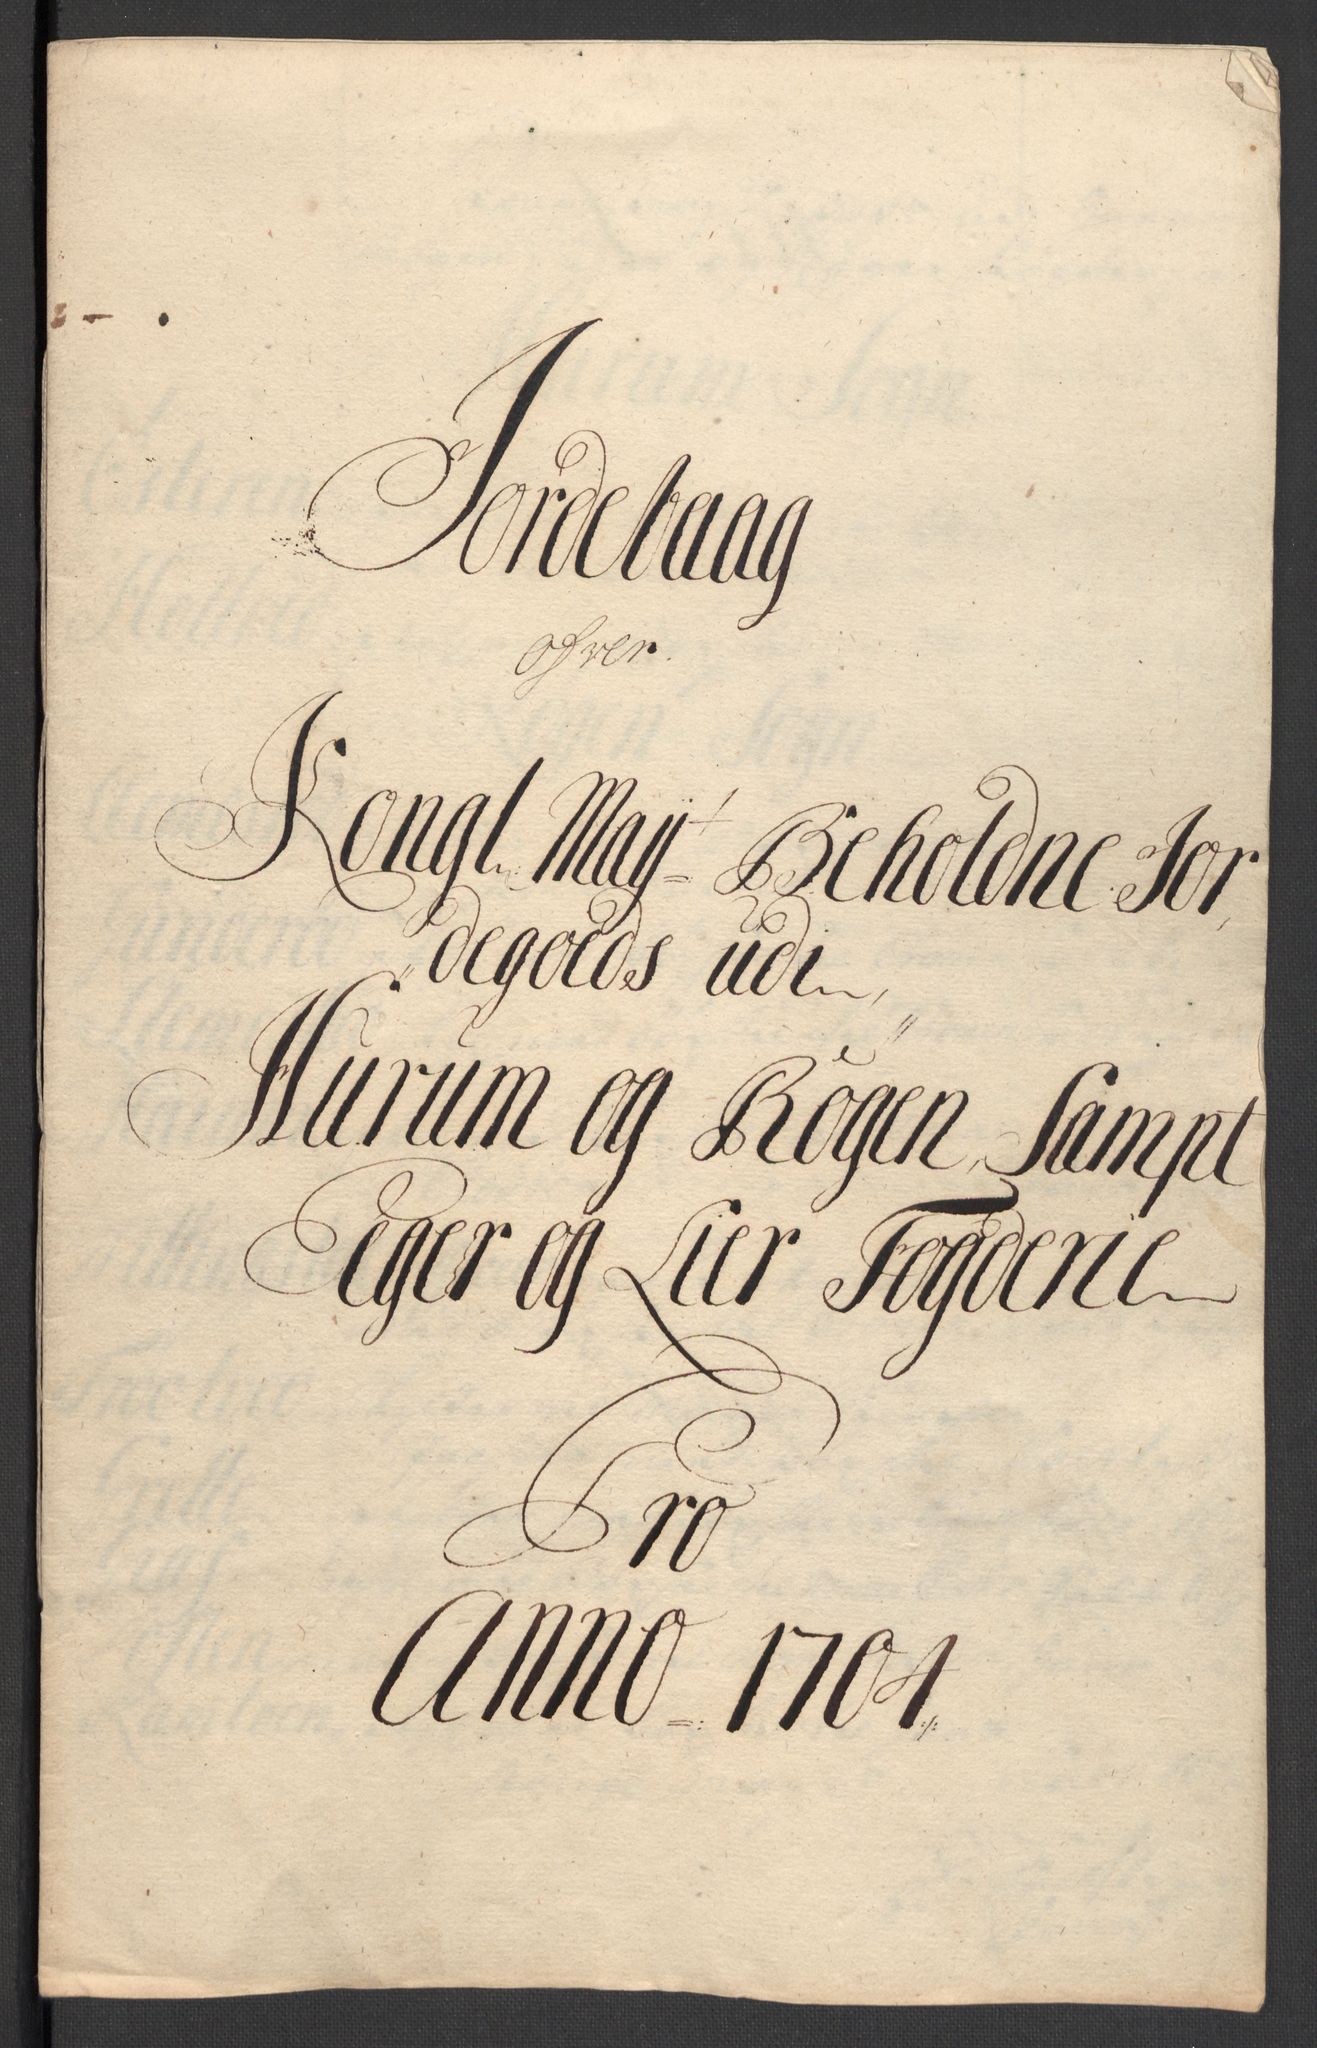 Jordebaag
ofver
Kongl. Maÿt Beholdne Jor
degoeds udi
Hürüm og Rögen, Sampt
Eger og Lier Fogderie
Pro
Anno 1704